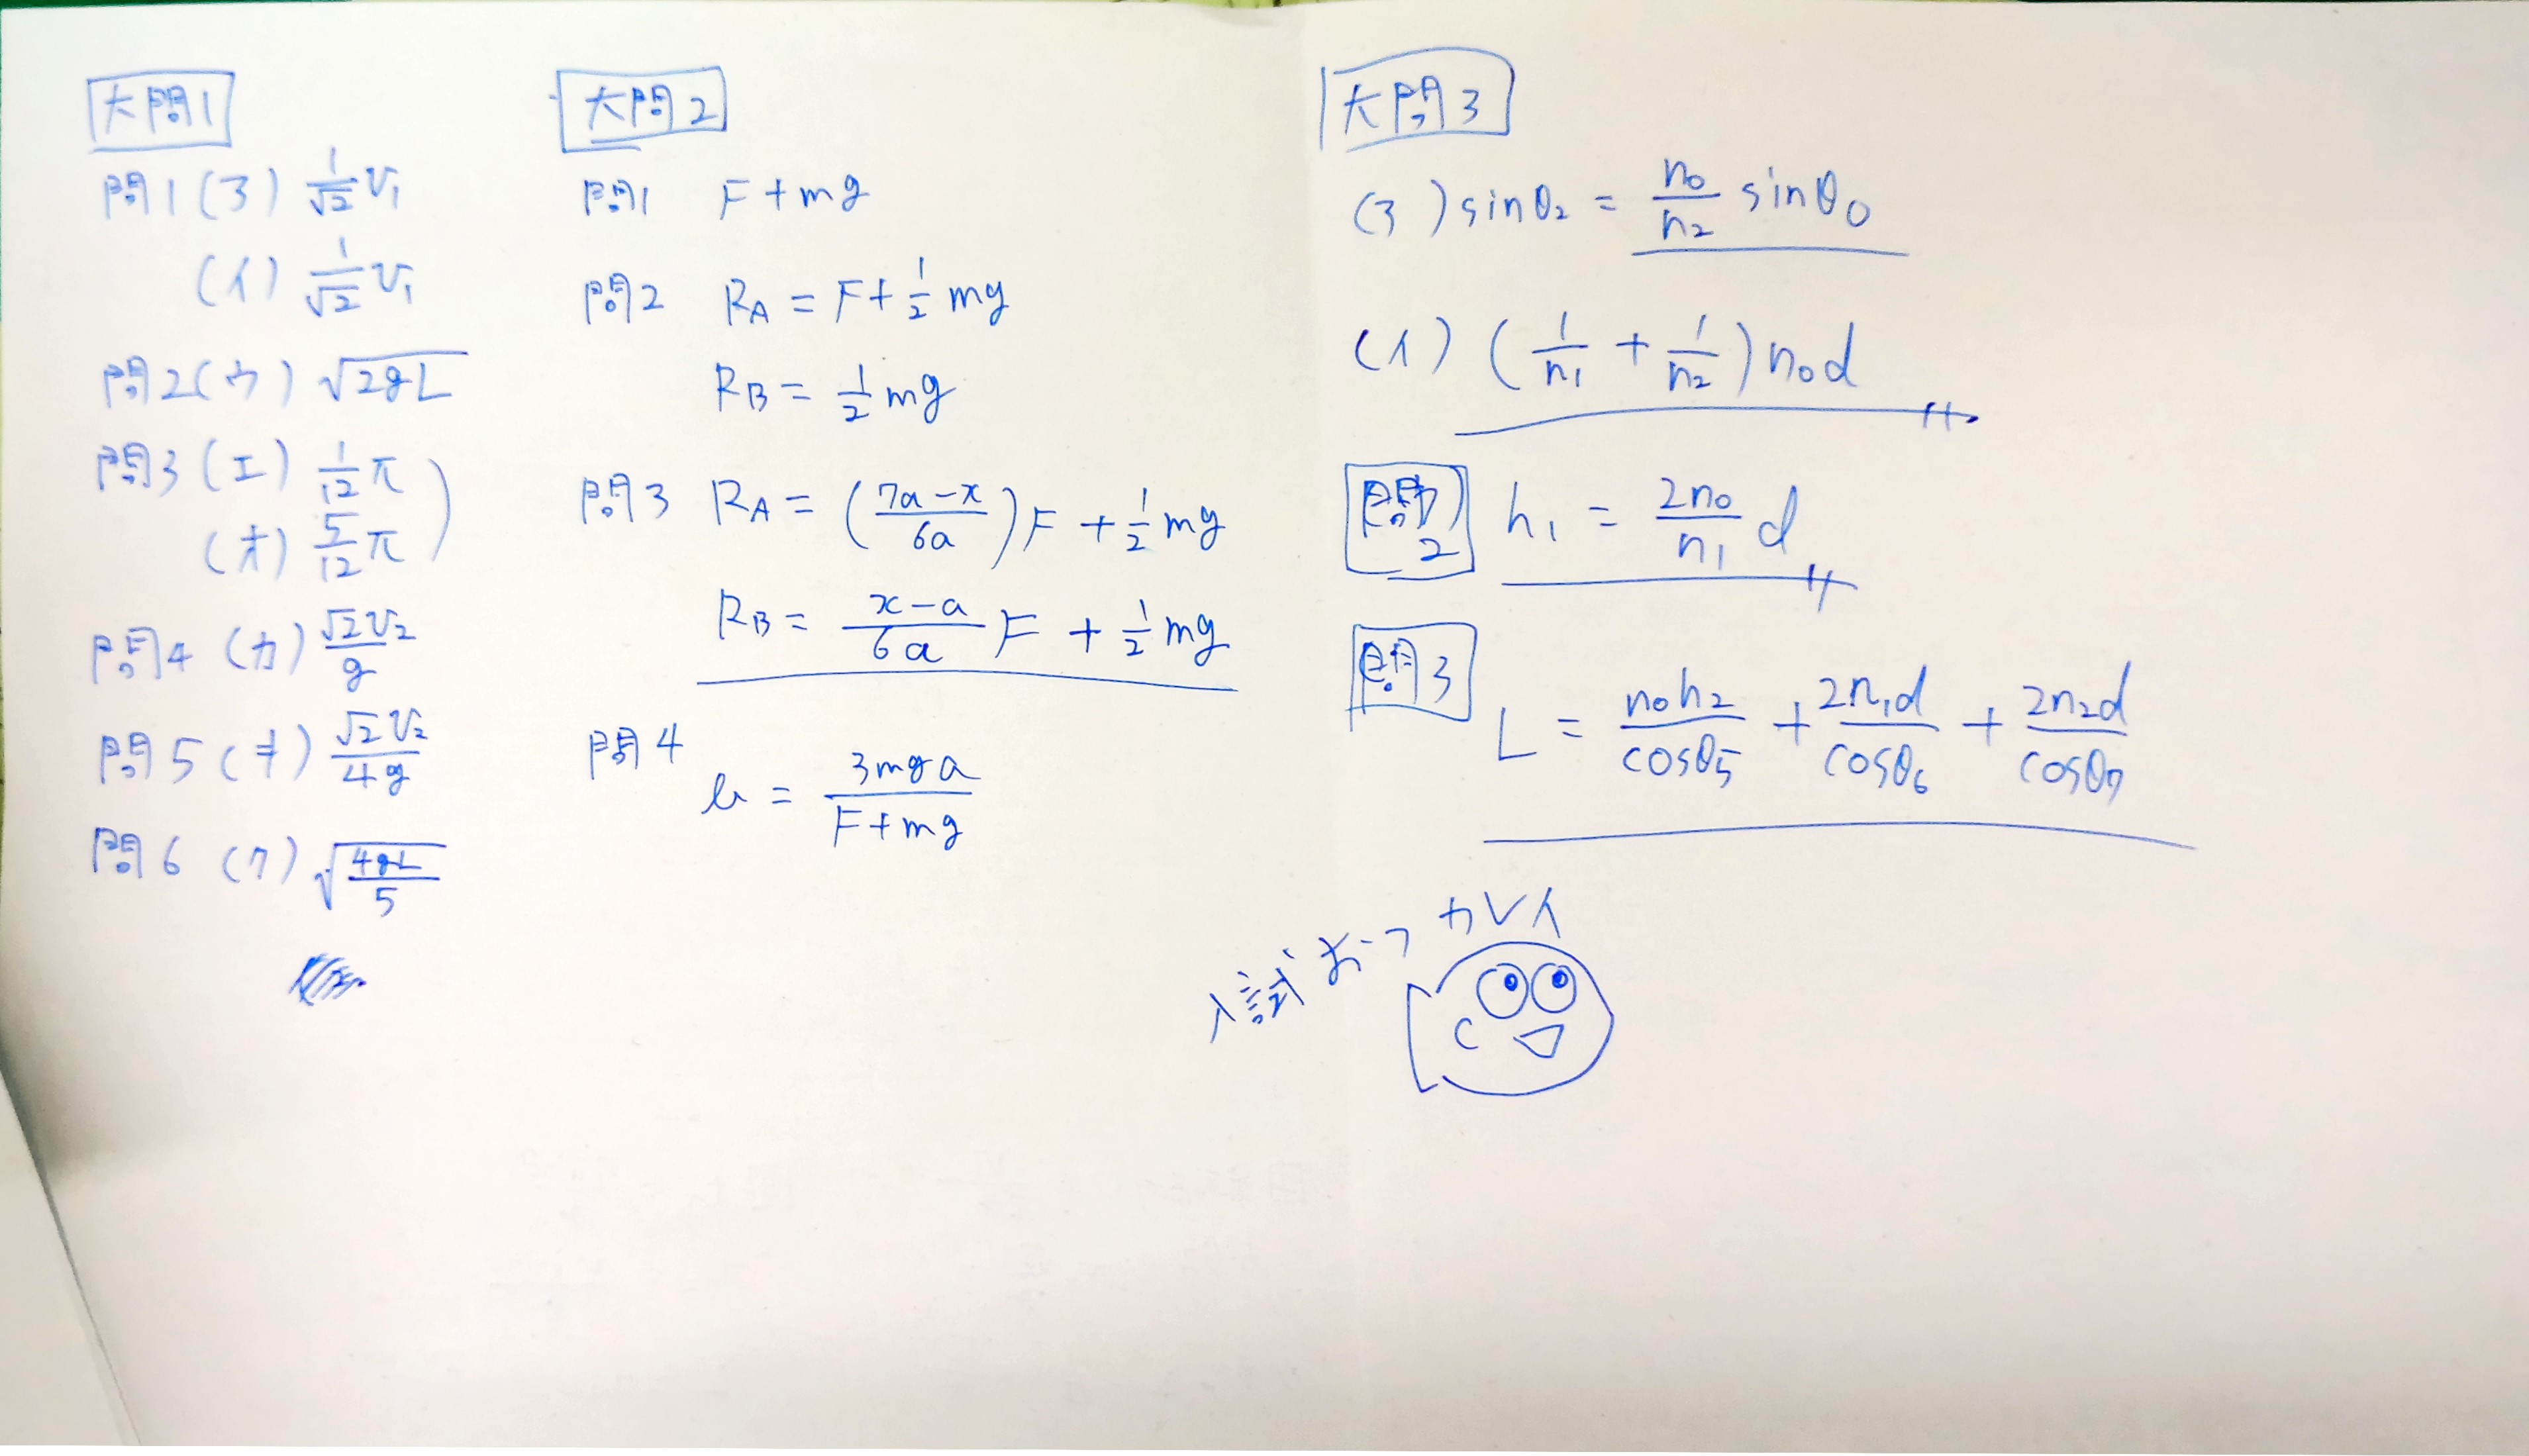 大問1
問1(ア) 1/√2 v₁
(イ) 1/√2 v₁
問2(ウ) √(2gL)
問3(エ) 1/12 π
(オ) 5/12 π
問4(カ) √2v₂/g
問5(キ) √2v₂/4g
問6(ク) √(4gL/5)
大問2
問1 F+mg
問2 RA = F+1/2 mg
RB = 1/2 mg
問3 RA = ((7a-x)/6a)F + 1/2 mg
RB = (x-a)/6a F + 1/2 mg
問4
b = 3mga/(F+mg)
大問3
(ア) sinθ₂ = n₀/n₂ sinθ₀
(イ) (1/n₁ + 1/n₂)n₀d
問2 h₁ = 2n₀/n₁ d
問3
L = n₀h₂/cosθ₅ + 2n₁d/cosθ₆ + 2n₂d/cosθ₇
入試おつカレイ